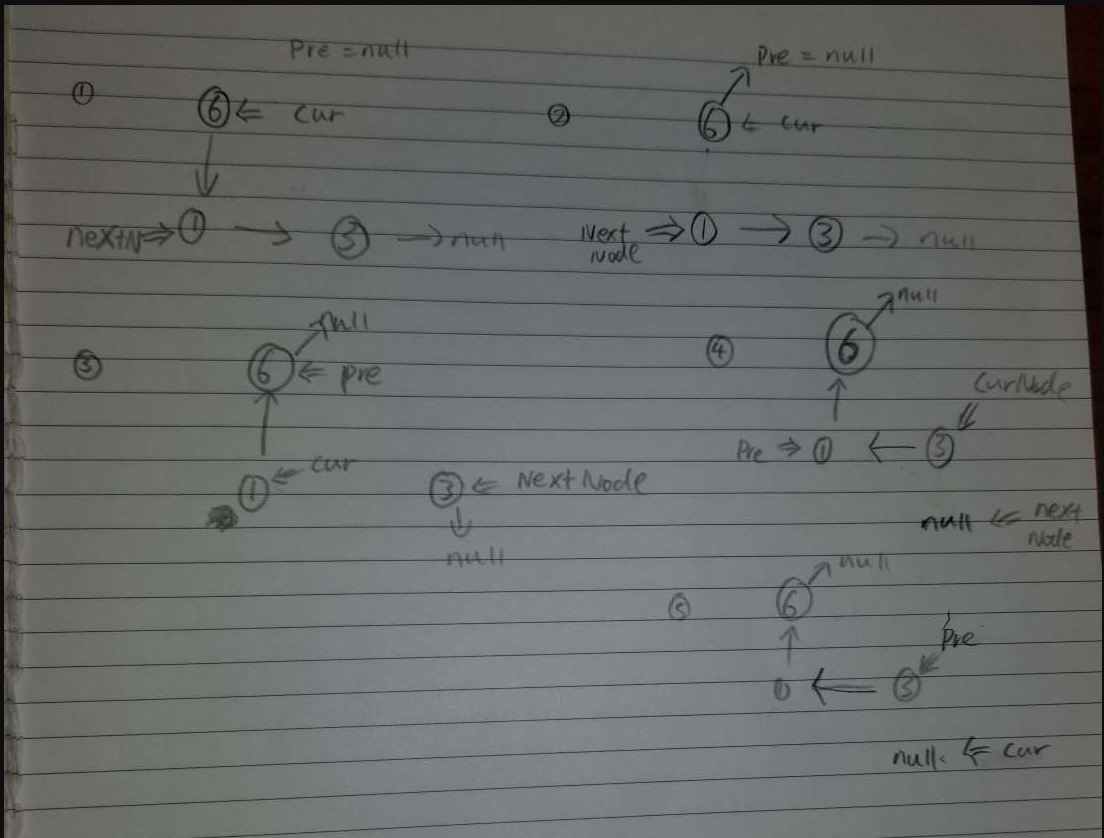 Pre = null
① ⑥ ⇐ cur
↓
nextN ⇒ ① → ③ → null
② Pre = null
↗
⑥ ⇐ cur
Next Node ⇒ ① → ③ → null
③ null
↗
⑥ ⇐ pre
↑
① ⇐ cur
③ ⇐ Next Node
↓
null
④ null
↗
⑥
↑
CurNode
Pre ⇒ ① ← ③
null ⇐ next Node
⑤ null
↗
⑥
↑
Pre
① ← ③
null. ⇐ cur